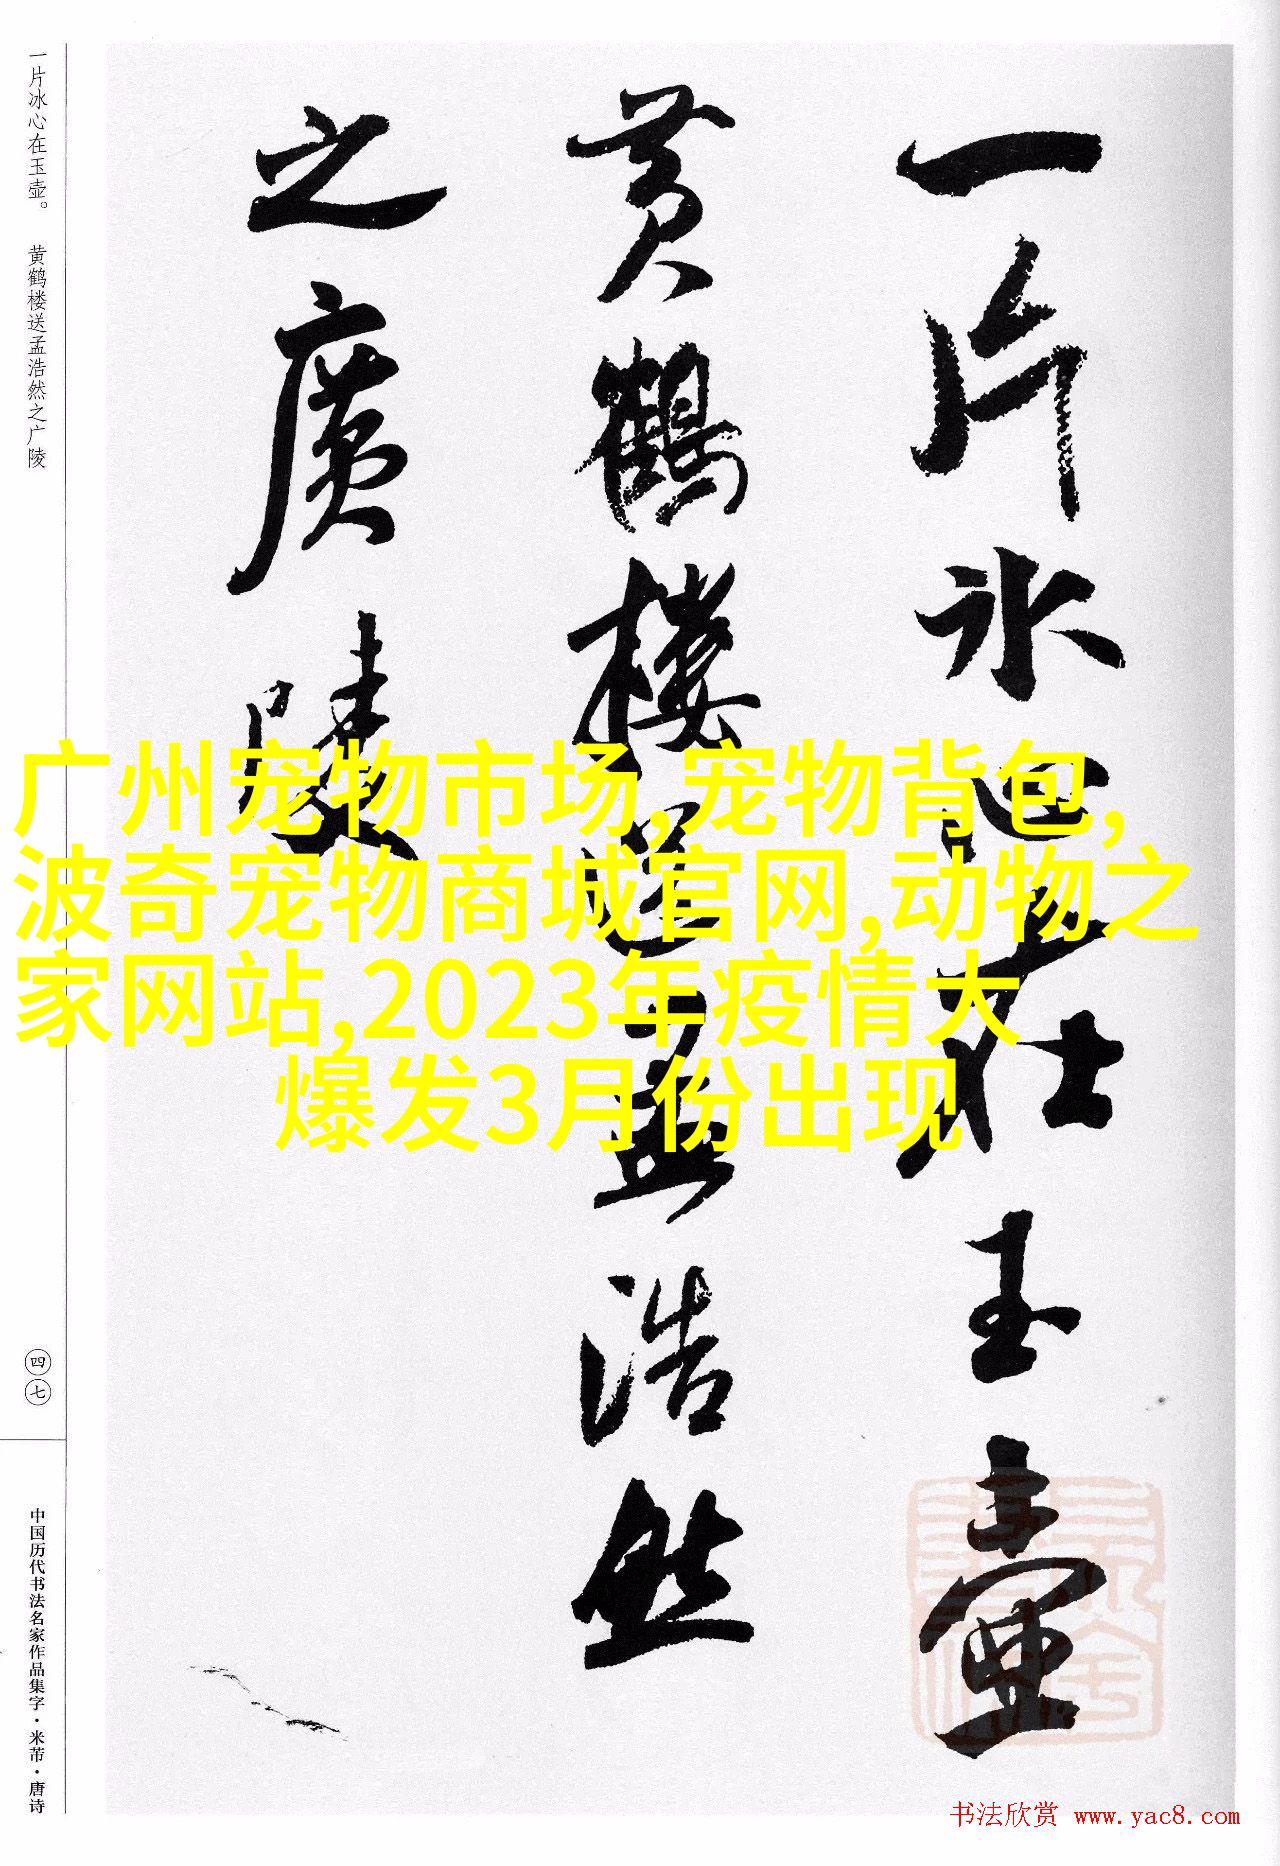 一片冰心在玉壶
黄鹤楼送孟浩然
之廣陵
一片冰心在玉壶。 黄鹤楼送孟浩然之广陵
四七
中国历代书法名家作品集字·米芾·唐诗
广州宠物市场,宠物背包,
波奇宠物商城官网,动物之
家网站,2023年疫情大
爆发3月份出现
书法欣赏 www.yac8.com